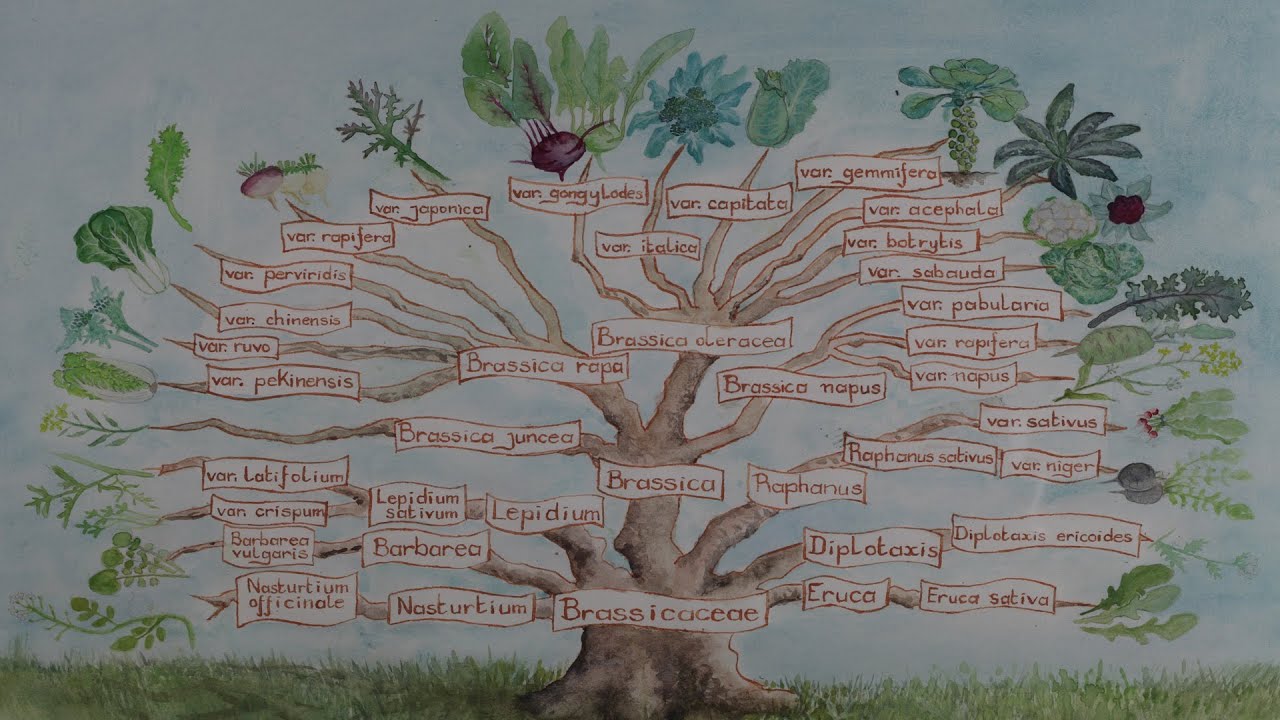 var. gemmifera
var. gongylodes
var. japonica
var. capitata
var. acephala
var. rapifera
var. italica
var. botrytis
var. perviridis
var. sabauda
var. pabularia
var. chinensis
Brassica oleracea
var. rapifera
var. ruvo
Brassica rapa
var. napus
var. pekinensis
Brassica napus
var. sativus
Brassica juncea
Raphanus sativus
var. niger
var. latifolium
Brassica
Raphanus
var. crispum
Lepidium
sativum
Lepidium
Barbarea
vulgaris
Barbarea
Diplotaxis
Diplotaxis ericoides
Nasturtium
officinale
Nasturtium
Brassicaceae
Eruca
Eruca sativa